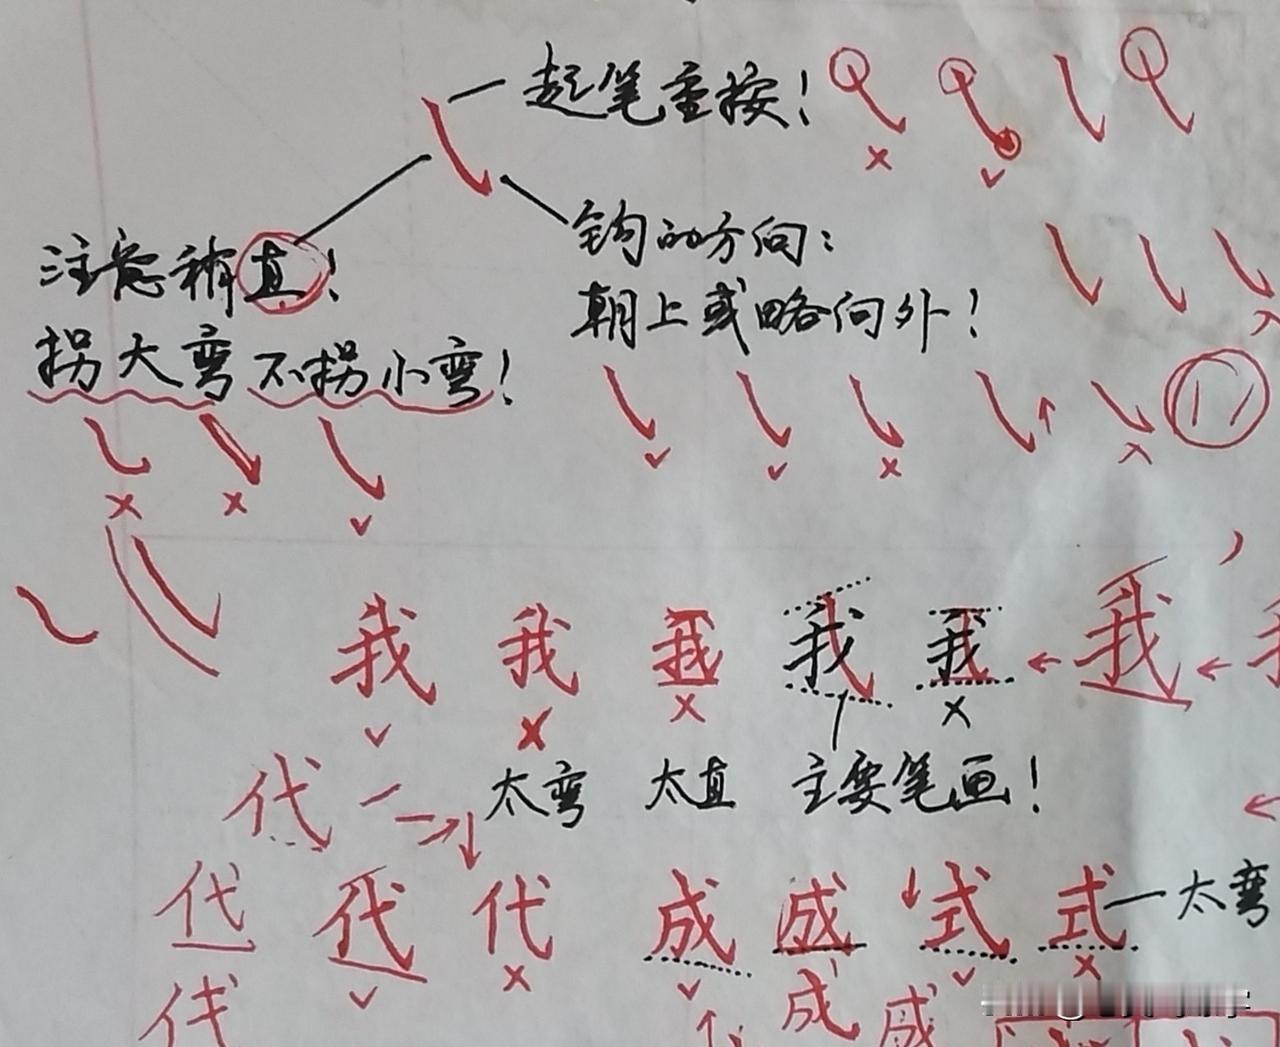 起笔重按！
钩的方向：
朝上或略向外！
注意稍直！
拐大弯不拐小弯！
我 我 我 我 我 我
太弯 太直 主要笔画！
代
代 代 代 成 成 式 式 太弯
代 成 成